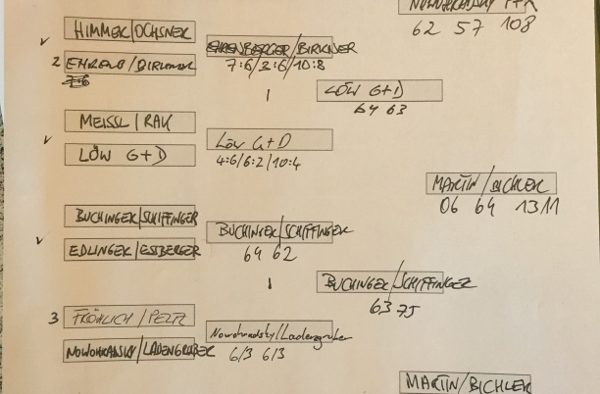 62 57 108
HIMMER/OCHSNER
EHRENBERGER/BIRKNER
2
7:6/2:6/10:8
LÖW G+D
64 63
MEISSL/RAK
LÖW G+D
LÖW G+D
4:6/6:2/10:4
MARTIN/BICHLER
06 64 1311
BUCHINGER/SCHIFFINGER
BUCHINGER/SCHIFFINGER
EDLINGER/ESSBERGER
64 62
BUCHINGER/SCHIFFINGER
63 75
3 FRÖHLICH/PELTZ
Nowohradsky/Ladengruber
NOWOHRADSKY/LADENGRUBER
6/3 6/3
MARTIN/BICHLER